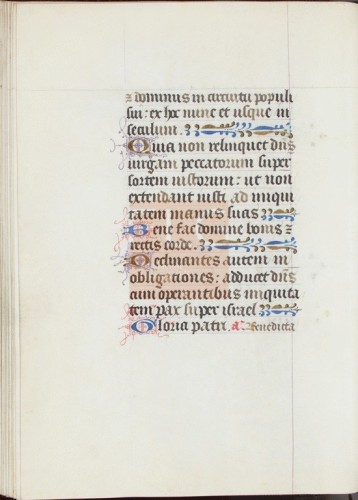 ⁊ dominus in circuitu populi
sui: ex hoc nunc et usque in
seculum.
Quia non relinquet dñs
uirgam peccatorum super
sortem iustorum: ut non
extendant iusti ad iniqui
tatem manus suas
Bene fac domine bonis ⁊
rectis corde.
Declinantes autem in
obligationes: adducet dñs
cum operantibus iniquita
tem pax super israel
Gloria patri. a. Benedicta